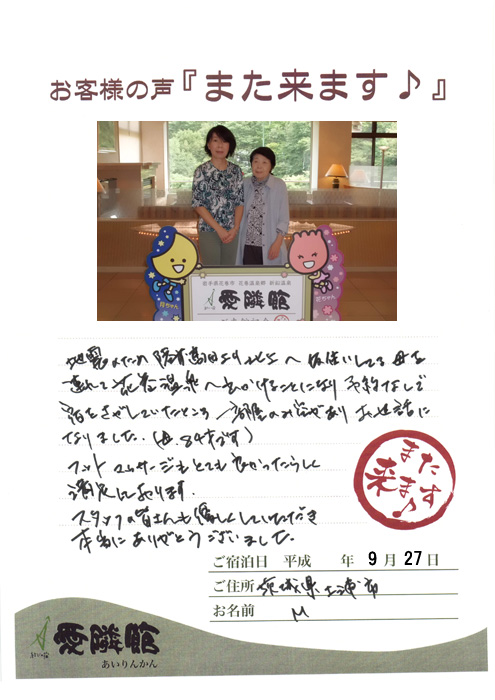 お客様の声『また来ます♪』
岩手県花巻市 花巻温泉郷 新鉛温泉
愛隣館
地震のため陸前高田より北上へ仮住いしてる母を
連れて花巻温泉へ出かけることになり予約なしで
宿をさがしていたところ一部屋のみ空があり お世話に
なりました.(母.84才です)
フットマッサージもとても良かったらしく
満足しております.
スタッフの皆さんも優しくしていただき
本当にありがとうございました.
また
来ます♪
ご宿泊日 平成 年 9月27日
ご住所 茨城県土浦市
お名前 M
愛隣館
あいりんかん